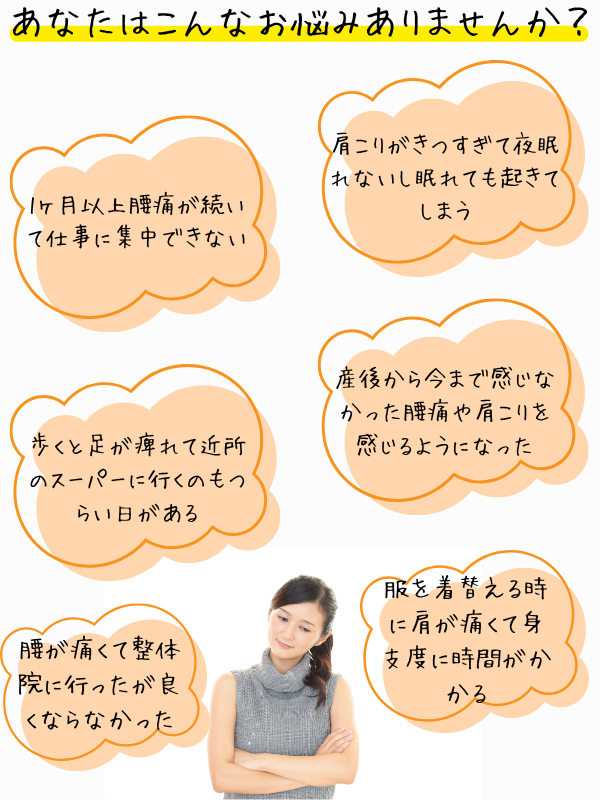 あなたはこんなお悩みありませんか？
肩こりがきつすぎて夜眠
れないし眠れても起きて
しまう
1ヶ月以上腰痛が続い
て仕事に集中できない
産後から今まで感じな
かった腰痛や肩こりを
感じるようになった
歩くと足が痺れて近所
のスーパーに行くのもつ
らい日がある
服を着替える時
に肩が痛くて身
支度に時間がか
かる
腰が痛くて整体
院に行ったが良
くならなかった